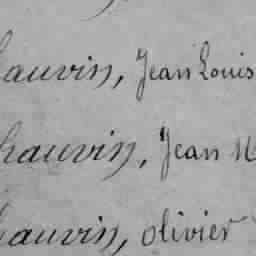 hauvin, Jean Louis
hauvin, Jean M
hauvin, olivier